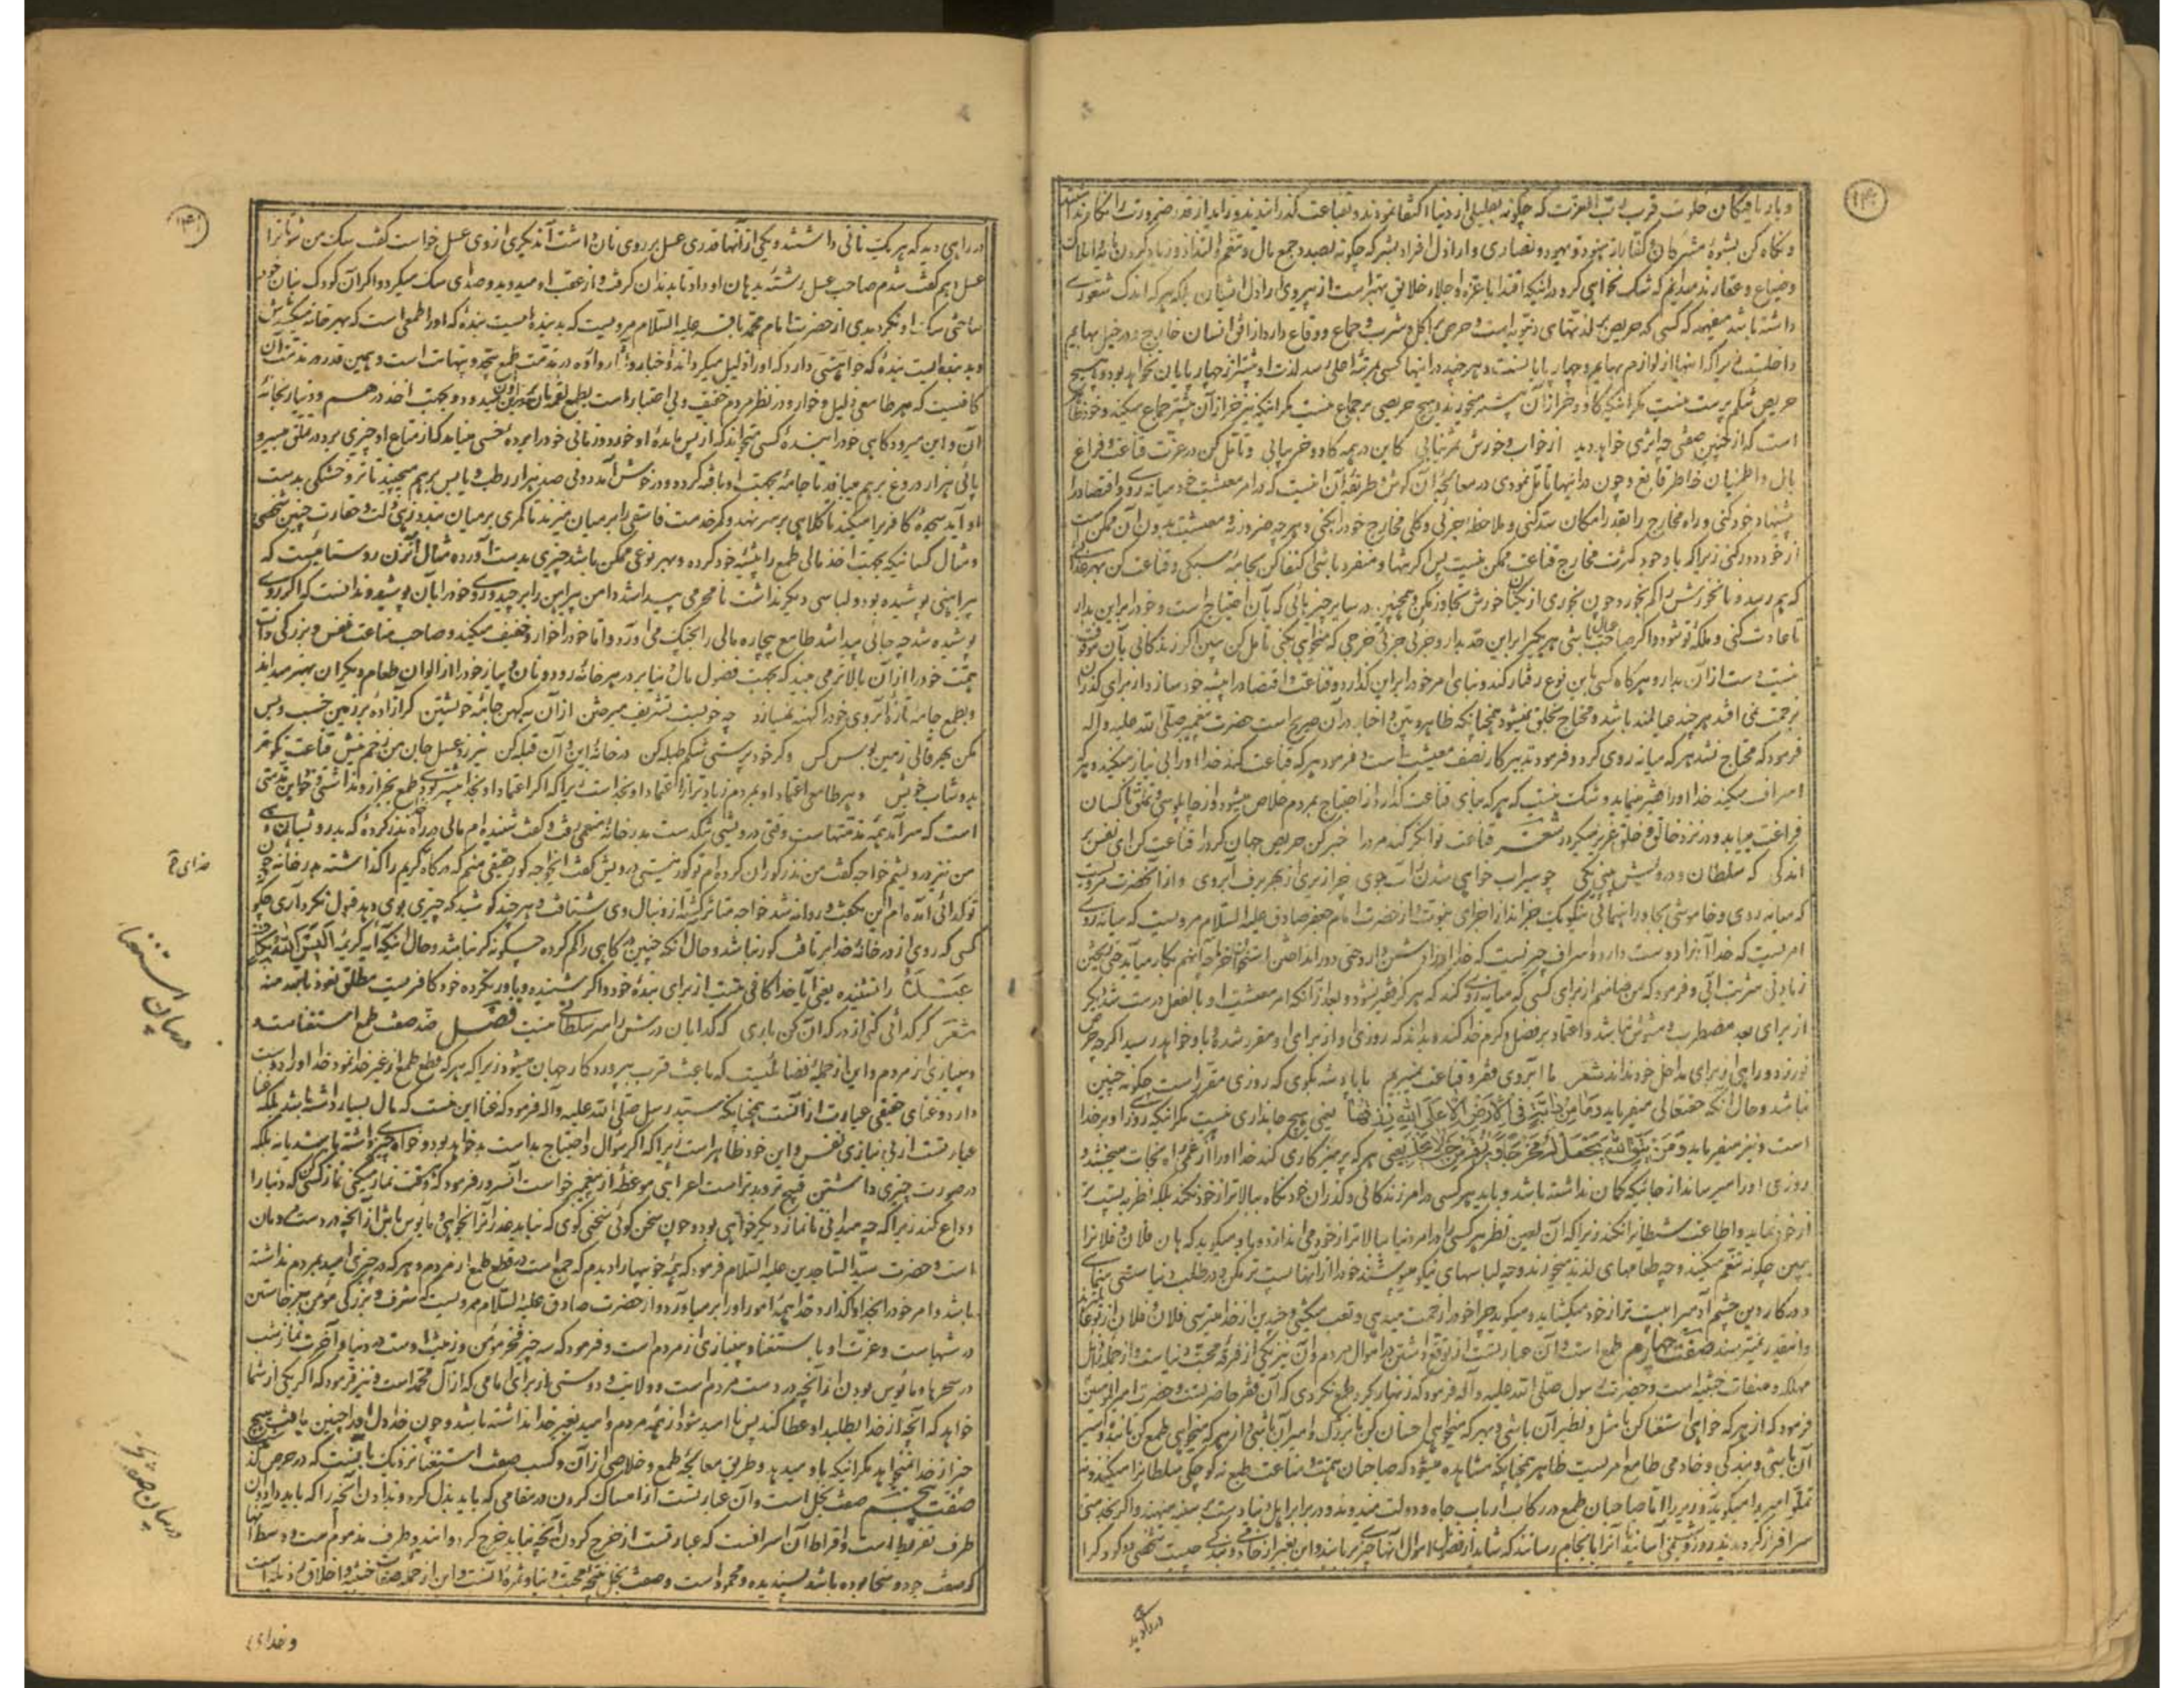 و بار یافتگان خلوت قرب رب العزت که چگونه بقلیلی از دنیا اکتفا نمودند و بقناعت گذرانیدند و زاید از قدر ضرورت را
و نگاه کن بشیوهٔ مشرکان و کفار از هنود و یهود و نصاری و اراذل افراد بشر که چگونه بصدد جمع مال و تنعم و التذاذ و زیاد کردن
و ضیاع و عقارند میدانم که شک نخواهی کرد در اینکه اقتدا باعزه و اجلاء خلایق بهتر است از پیروی اراذل ایشان بلکه هر که اندک شعوری
داشته باشد میفهمد که کسی که حریص بر لذتهای دنیویه است و حرص بر اکل و شرب و جماع و وقاع دارد از افق انسان خارج و در خیل بهایم
داخلست زیرا که اینها از لوازم بهایم و چهارپایانست و هر چند در اینها کسی بمرتبهٔ اعلی رسد لذت او بیشتر از چهارپایان نخواهد بود و هیچ
حریص شکم پرست نیست مگر اینکه گاو و خر از آن بیشتر میخورند و هیچ حریصی بر جماع نیست مگر اینکه خنزیر و خر از آن بیشتر جماع میکند و خود ظاهر
است که از چنین صفتی چه اثری خواهد دید از خواب و خورش ثمر نیابی کاین در همه گاو و خر بیابی و تأمل کن در عزت قناعت و فراغ
بال و اطمینان خاطر قانع و چون در اینها تأمل نمودی در معالجهٔ آن کوش و طریقهٔ آن اینست که در امر معیشت خود میانه روی و اقتصاد را
پیشنهاد خود کنی و راه مخارج را بقدر امکان سد کنی و ملاحظه جزئی و کلی مخارج خود را بکنی و هر چه ضرور نه و معیشت بدون آن ممکن است
از خود دور کنی زیرا که با وجود کثرت مخارج قناعت ممکن نیست پس اگر تنها و منفرد باشی اکتفا کن بجامه سبکی و قناعت کن بهر غذائی
که بهم رسد و نانخورش را کم بخور و چون بخوری از یکنان خورش تجاوز مکن و همچنین در سایر چیزهائی که بآن احتیاج است و خود را بر این بدار
تا عادت کنی و ملکهٔ تو شود و اگر صاحب عیال باشی هر یک را بر این قدر بدار و جزئی جزئی خرجی که میخواهی بکنی تأمل کن ببین اگر زندگانی بآن موقوف
نیست دست از آن بدار و هرگاه کسی باین نوع رفتار کند و بنای امر خود را بر این گذارد و قناعت و اقتصاد را پیشه خود سازد از برای گذران
بزحمت نمی افتد هر چند عیالمند باشد و محتاج بخلق نمیشود همچنانکه ظاهر و بین و اخبار در آن صریح است حضرت پیغمبر صلی الله علیه و آله
فرمود که محتاج نشد هر که میانه روی کرد و فرمود تدبیر کار نصف معیشت است و فرمود هر که قناعت کند خدا او را بی نیاز میکند و هر که
اسراف میکند خدا او را فقیر مینماید و شک نیست که هر که بنای قناعت گذارد از احتیاج بمردم خلاص میشود و از چاپلوسی و تملق ناکسان
فراغت مییابد و در نزد خالق و خلق عزیز میگردد شعر قناعت توانگر کند مرد را خبر کن حریص جهان گرد را قناعت کن ای نفس بر
اندکی که سلطان و درویش بینی یکی چو سیراب خواهی شدن ز آب جوی چرا ریزی از بهر برف آبروی و از آنحضرت مرویست
که میانه روی و خاموشی بجا و راهنمائی نیکو یک جزواند از اجزای نبوت و از حضرت امام جعفر صادق علیه السلام مرویست که میانه روی
امریست که خدا آنرا دوست دارد و اسراف چیزیست که خدا آنرا دشمن دارد حتی دور انداختن استخوان خرما چه آنهم بکار میآید حتی ریختن
زیادتی شربت آبی و فرمود که من ضامنم از برای کسی که میانه روی کند که هرگز فقیر نشود و بعد از آنکه امر معیشت او بالفعل درست شد دیگر
از برای بعد مضطرب و مشوش نباشد و اعتماد بر فضل و کرم خدا کند و بداند که روزی او از برای او مقرر شده و باو خواهد رسید اگر چه حرص
نورزد و راهی از برای مداخل خود نداند شعر ما آبروی فقر و قناعت نمیبریم با پادشه بگوی که روزی مقرر است چگونه چنین
نباشد و حال آنکه حقتعالی میفرماید وَمَا مِنْ دَابَّةٍ فِي الْأَرْضِ إِلَّا عَلَى اللَّهِ رِزْقُهَا یعنی هیچ جانداری نیست مگر اینکه روزی او بر خدا
است و نیز میفرماید وَمَنْ يَتَّقِ اللَّهَ يَجْعَلْ لَهُ مَخْرَجًا وَيَرْزُقْهُ مِنْ حَيْثُ لَا يَحْتَسِبُ یعنی هر که پرهیزکاری کند خدا او را از غمی راه نجات میبخشد و
روزی او را میرساند از جائیکه گمان نداشته باشد و باید هر کسی در امر زندگانی و گذران خود نگاه ببالاتر از خود نکند بلکه نظر به پست تر
از خود نماید و اطاعت شیطان را نکند زیرا که آن لعین نظر هر کسی را در امر دنیا ببالاتر از خود می اندازد و باو میگوید که هان فلان و فلان را
ببین چگونه تنعم میکنند و چه طعامهای لذیذ میخورند و چه لباسهای نیکو میپوشند خود را از اینها پست تر مکن و در طلب دنیا سستی منمای
و در کار دین چشم آدمی را بپست تر از خود میگشاید و میگوید چرا خود را زحمت میدهی و تعب میکشی و چندین از خدا میترسی فلان و فلان از تو
و اینقدر نمیترسند صفت چهارم طمع است و آن عبارتست از توقع داشتن در اموال مردم و آن نیز یکی از فروع محبت دنیا است و از جمله رذایل
مهلکه و صفات خبیثه است و حضرت رسول صلی الله علیه و آله فرمود که زنهار که گرد طمع نگردی که آن فقر حاضریست و حضرت امیرالمؤمنین
فرمود که از هر که خواهی استغنا کن تا مثل و نظیر آن باشی و بهر که میخواهی احسان کن تا بزرگ و امیر آن باشی و از هر که میخواهی طمع کن تا بنده و اسیر
آن باشی و بندگی و خادمی طامع امریست ظاهر همچنانکه مشاهده میشود که صاحبان همت و مناعت طبع نه کوچکی سلطان را میکنند و نه
تملق امیر را میگویند و وزیر را اما صاحبان طمع در رکاب ارباب جاه و دولت میدوند و در برابر اهل دنیا دست بر سینه مینهند و اگر بخدمتی
سرافراز گردیدند روز و شب نمی آسایند تا آنرا بانجام رسانند که شاید از فضول اموال آنها چیزی بربایند و این بغیر از خادمی و بندگی چیست شخصی دو کودک را
در راهی دید که هر یک نانی داشتند و یکی از آنها قدری عسل بر روی نان داشت آن دیگری از وی عسل خواست گفت سگ من شو تا ترا
عسل دهم گفت شدم صاحب عسل رشتهٔ بدهان او داد تا بدندان گرفت و از عقب او میدوید و صدای سگ میکرد و اگر آن کودک بنان خود
ساختی سگ او نگردیدی از حضرت امام محمد باقر علیه السلام مرویست که بد بندهٔ ایست بندهٔ که او را طمعی است که بهر خانه میکشدش
و بد بندهٔ ایست بندهٔ که خواهشی دارد که او را ذلیل میگرداند و اخبار و آثار وارده در مذمت طمع بیحد و بینهایت است و همین قدر در مذمت آن
کافیست که هر طامعی ذلیل و خوار و در نظر مردم خفیف و بی اعتبار است بطمع لقمهٔ نان بدر خانهٔ این و آن میدود و بجهت اخذ درهم و دینار بخانهٔ
آن و این میرود گاهی خود را بندهٔ کسی میخواند که از پس ماندهٔ او خورد و زمانی خود را برده شخصی مینامد که از متاع او چیزی برد در تملق بیسر و
پائی هزار دروغ بر هم میبافد تا جامه بجهت او بافته گردد و در خوش آمد دونی صد هزار رطب و یابس بر هم میچیند تا تر و خشکی بدست
او آید سجدهٔ کافر را میکند تا کلاهی بر سر نهد و کمر خدمت فاسقی را بر میان میزند تا کمری بر میان بندد زهی ذلت و حقارت چنین شخصی
و مثال کسانیکه بجهت اخذ مالی طمع را پیشه خود کرده و بهر نوعی ممکن باشد چیزی بدست آورده مثال آن زن روستائیست که
پیراهنی پوشیده بود و لباسی دیگر نداشت نامحرمی پیدا شد دامن پیراهن را برچید و روی خود را بآن پوشید و ندانست که اگر روی
پوشیده شد چه جائی پیدا شد طامع بیچاره مالی را بچنگ می آورد و اما خود را خوار و خفیف میکند و صاحب مناعت نفس و بزرگی ذات
همت خود را از آن بالاتر می بیند که بجهت فضول مال دنیا بر در هر خانه رود و نان و پیاز خود را از الوان طعام دیگران بهتر میداند
و بطمع جامهٔ تازه آبروی خود را کهنه نمیسازد چه خوبست تشریف میرختن از آن به کهن جامهٔ خویشتن گر آزادهٔ بر زمین خسب و بس
مکن بهر قالی زمین بوس کس و گر خودپرستی شکم طبله کن در خانه این و آن قبله کن نیرزد عسل جان من زخم نیش قناعت نکوتر
بدوشاب خویش و هر طامعی اعتماد او بمردم زیادتر از اعتماد او بخداست زیرا که اگر اعتماد او بخدا بیشتر بودی طمع بغیر از او نداشتی و خود این مذمتی
است که سرآمد همه مذمتهاست وقتی درویشی تنگدست بدر خانهٔ منعمی رفت و گفت شنیده ام مالی در راه نذر کردهٔ که بدرویشان دهی
من نیز درویشم خواجه گفت من نذر کوران کرده ام تو کور نیستی درویش گفت ایخواجه کور حقیقی منم که درگاه کریم را گذاشته بدر خانه چون
تو گدائی آمده ام این بگفت و روانه شد خواجه متأثر گشته از دنبال وی شتافت و هر چند کوشید که چیزی بوی دهد قبول نکرد آری چگونه
کسی که روی از در خانهٔ خدا بر تافت کور نباشد و حال آنکه چنین درگاهی را گم کرده چگونه کر نباشد و حال اینکه آیه کریمه أَلَيْسَ اللَّهُ بِكَافٍ
عَبْدَهُ را نشنیده یعنی آیا خدا کافی نیست از برای بندهٔ خود و اگر شنیده و باور نکرده خود کافریست مطلق نعوذ بالله منه
شعر گر گدائی کنی از درگه او کن باری که گدایان درش را سر سلطانی نیست فصل ضد صفت طمع استغناست و
و بینیازی از مردم و این از جمله فضائلیست که باعث قرب پروردگار جهان میشود زیرا که هر که قطع طمع از غیر خدا نمود خدا او را دوست
دارد و غنای حقیقی عبارت از آنست همچنانکه سید رسل صلی الله علیه و آله فرمود که غنا این نیست که مال بسیار داشته باشد بلکه غنا
عبارتست از بی نیازی نفس و این خود ظاهر است زیرا که اگر سؤال و احتیاج بداست بد خواهد بود خواه چیزی داشته باشند یا نه بلکه
در صورت چیزی داشتن قبیح تر و بدتر است اعرابی موعظهٔ از پیغمبر خواست آنسرور فرمود که وقت نماز میکنی نماز کسی کن که دنیا را
وداع کند زیرا که چه میدانی تا نماز دیگر خواهی بود و چون سخن گوئی سخنی گوی که نباید عذر آنرا بخواهی و مأیوس باش از آنچه در دست مردمان
است و حضرت سید الساجدین علیه السلام فرمود که همهٔ خوبیها را دیدم که جمع است در قطع طمع از مردم و هر که در چیزی امید بمردم نداشته
باشد و امر خود را بخدا واگذارد خدا همهٔ امور او را بر میآورد و از حضرت صادق علیه السلام مرویست که شرف و بزرگی مومن برخاستن
در شبهاست و عزت او باستغنا و بینیازی از مردم است و فرمود که سه چیز فخر مؤمن و زینت اوست در دنیا و آخرت نماز شب
در سحرها و مأیوس بودن از آنچه در دست مردم است و ولایت و دوستی از برای امامی که از آل محمد است و نیز فرمود که اگر یکی از شما
خواهد که آنچه از خدا بطلبد او عطا کند پس ناامید شود از همهٔ مردم و امید بغیر خدا نداشته باشد و چون خدا دل او را چنین یافت هیچ
چیز از خدا نمیخواهد مگر اینکه باو میدهد و طریق معالجهٔ طمع و خلاصی از آن و کسب صفت استغنا نزدیک بآنست که در حرص گذشت
صفت پنجم صفت بخل است و آن عبارتست از امساک کردن در مقامی که باید بذل کرد و ندادن آنچه را که باید داد و آن
طرف تفریط است و افراط آن اسرافست که عبارتست از خرج کردن آنچه نباید خرج کرد و ایندو طرف مذموم است و وسط اینها
که صفت جود و سخا بوده باشد پسندیده و محمود است و صفت بخل نتیجهٔ محبت دنیا و ثمرهٔ آنست و این از جمله صفات خبیثه و اخلاق رذیله است
در بیان استغنا